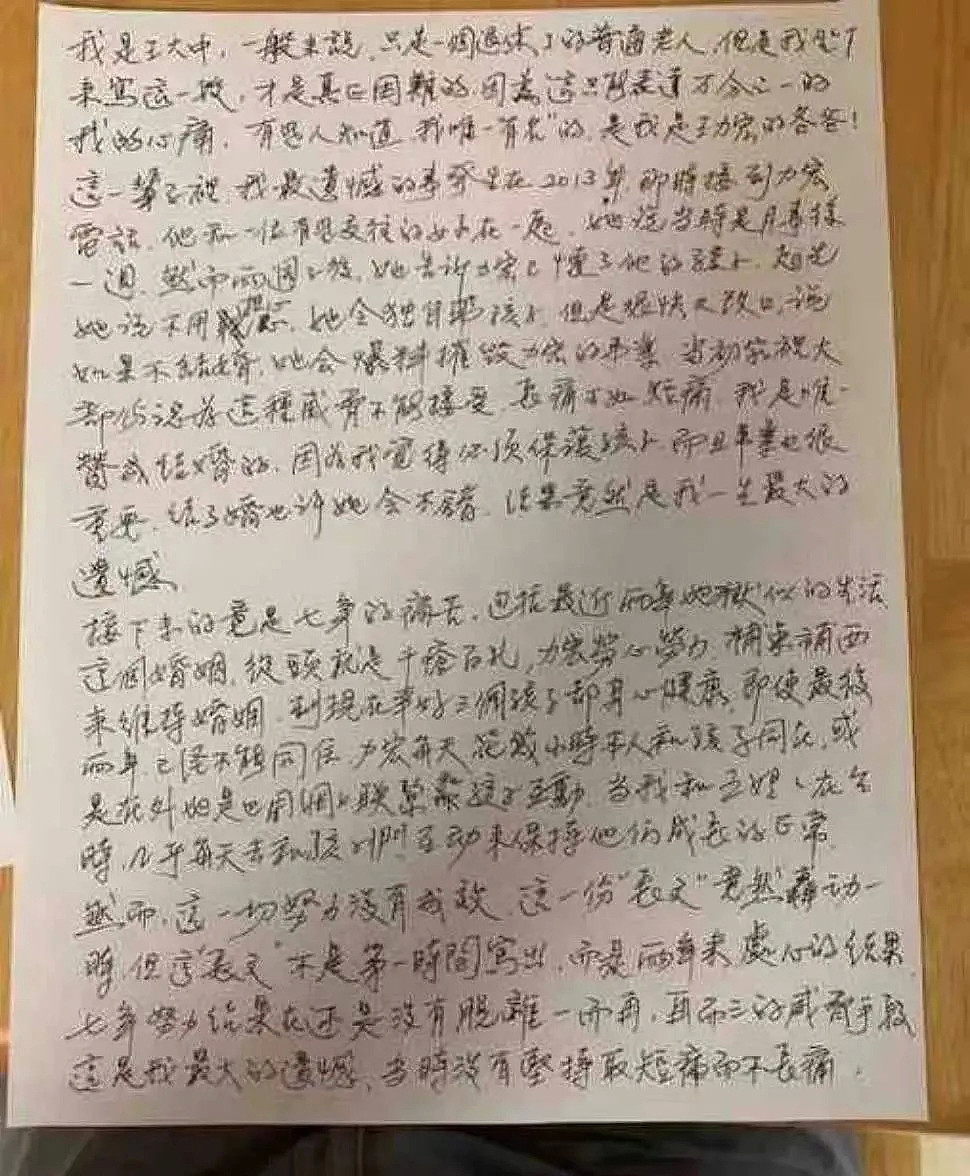 我是王大中，一般来說，只是一個退休了的普通老人，但是我坐下
来寫這一段，才是真正困難的，因為這只能表達万分之一的
我的心痛，有些人知道，我唯一“有名”的，是我是王力宏的爸爸！
這一輩子裡，我最遺憾的事發生在2013年，那時接到力宏
電話，他和一位有過交往的女子在一起，她說當時是月事樣
一週，然而兩週之後，她告訴力宏已懷了他的孩子，起先
她说不用担心，她会独自帶孩子，但是很快又改口，说
如果不結婚，她会爆料摧毀力宏的事業，當初家裡大
部份認為這種威脅不能接受，長痛不如短痛，我是唯一
贊成结婚的，因為我覺得必須保護孩子，而且事業也很
重要，结了婚也许她会不錯，结果竟然是我一生最大的
遺憾
接下来的竟是七年的痛苦，包括最近兩年地獄似的生活
這個婚姻，從頭就是千瘡百孔，力宏勞心勞力，補東補西
来維持婚姻，到現在幸好三個孩子都身心健康，即使最後
兩年，已經不能同住，力宏每天花幾小時本人和孩子同在，或
是在外地是也用網上联繫跟孩子互動，當我和王媽媽在台
時，几乎每天去和孩子們互动来保持他们成長的正常，
然而，這一切努力没有成效，這一份“長文”竟然轟动一
時，但這“長文”不是第一時間寫出，而是兩年来處心的结果，
七年努力结果在还是没有脱離一而再，再而三的威脅手段
這是我最大的遺憾，當時没有堅持取短痛而不長痛，